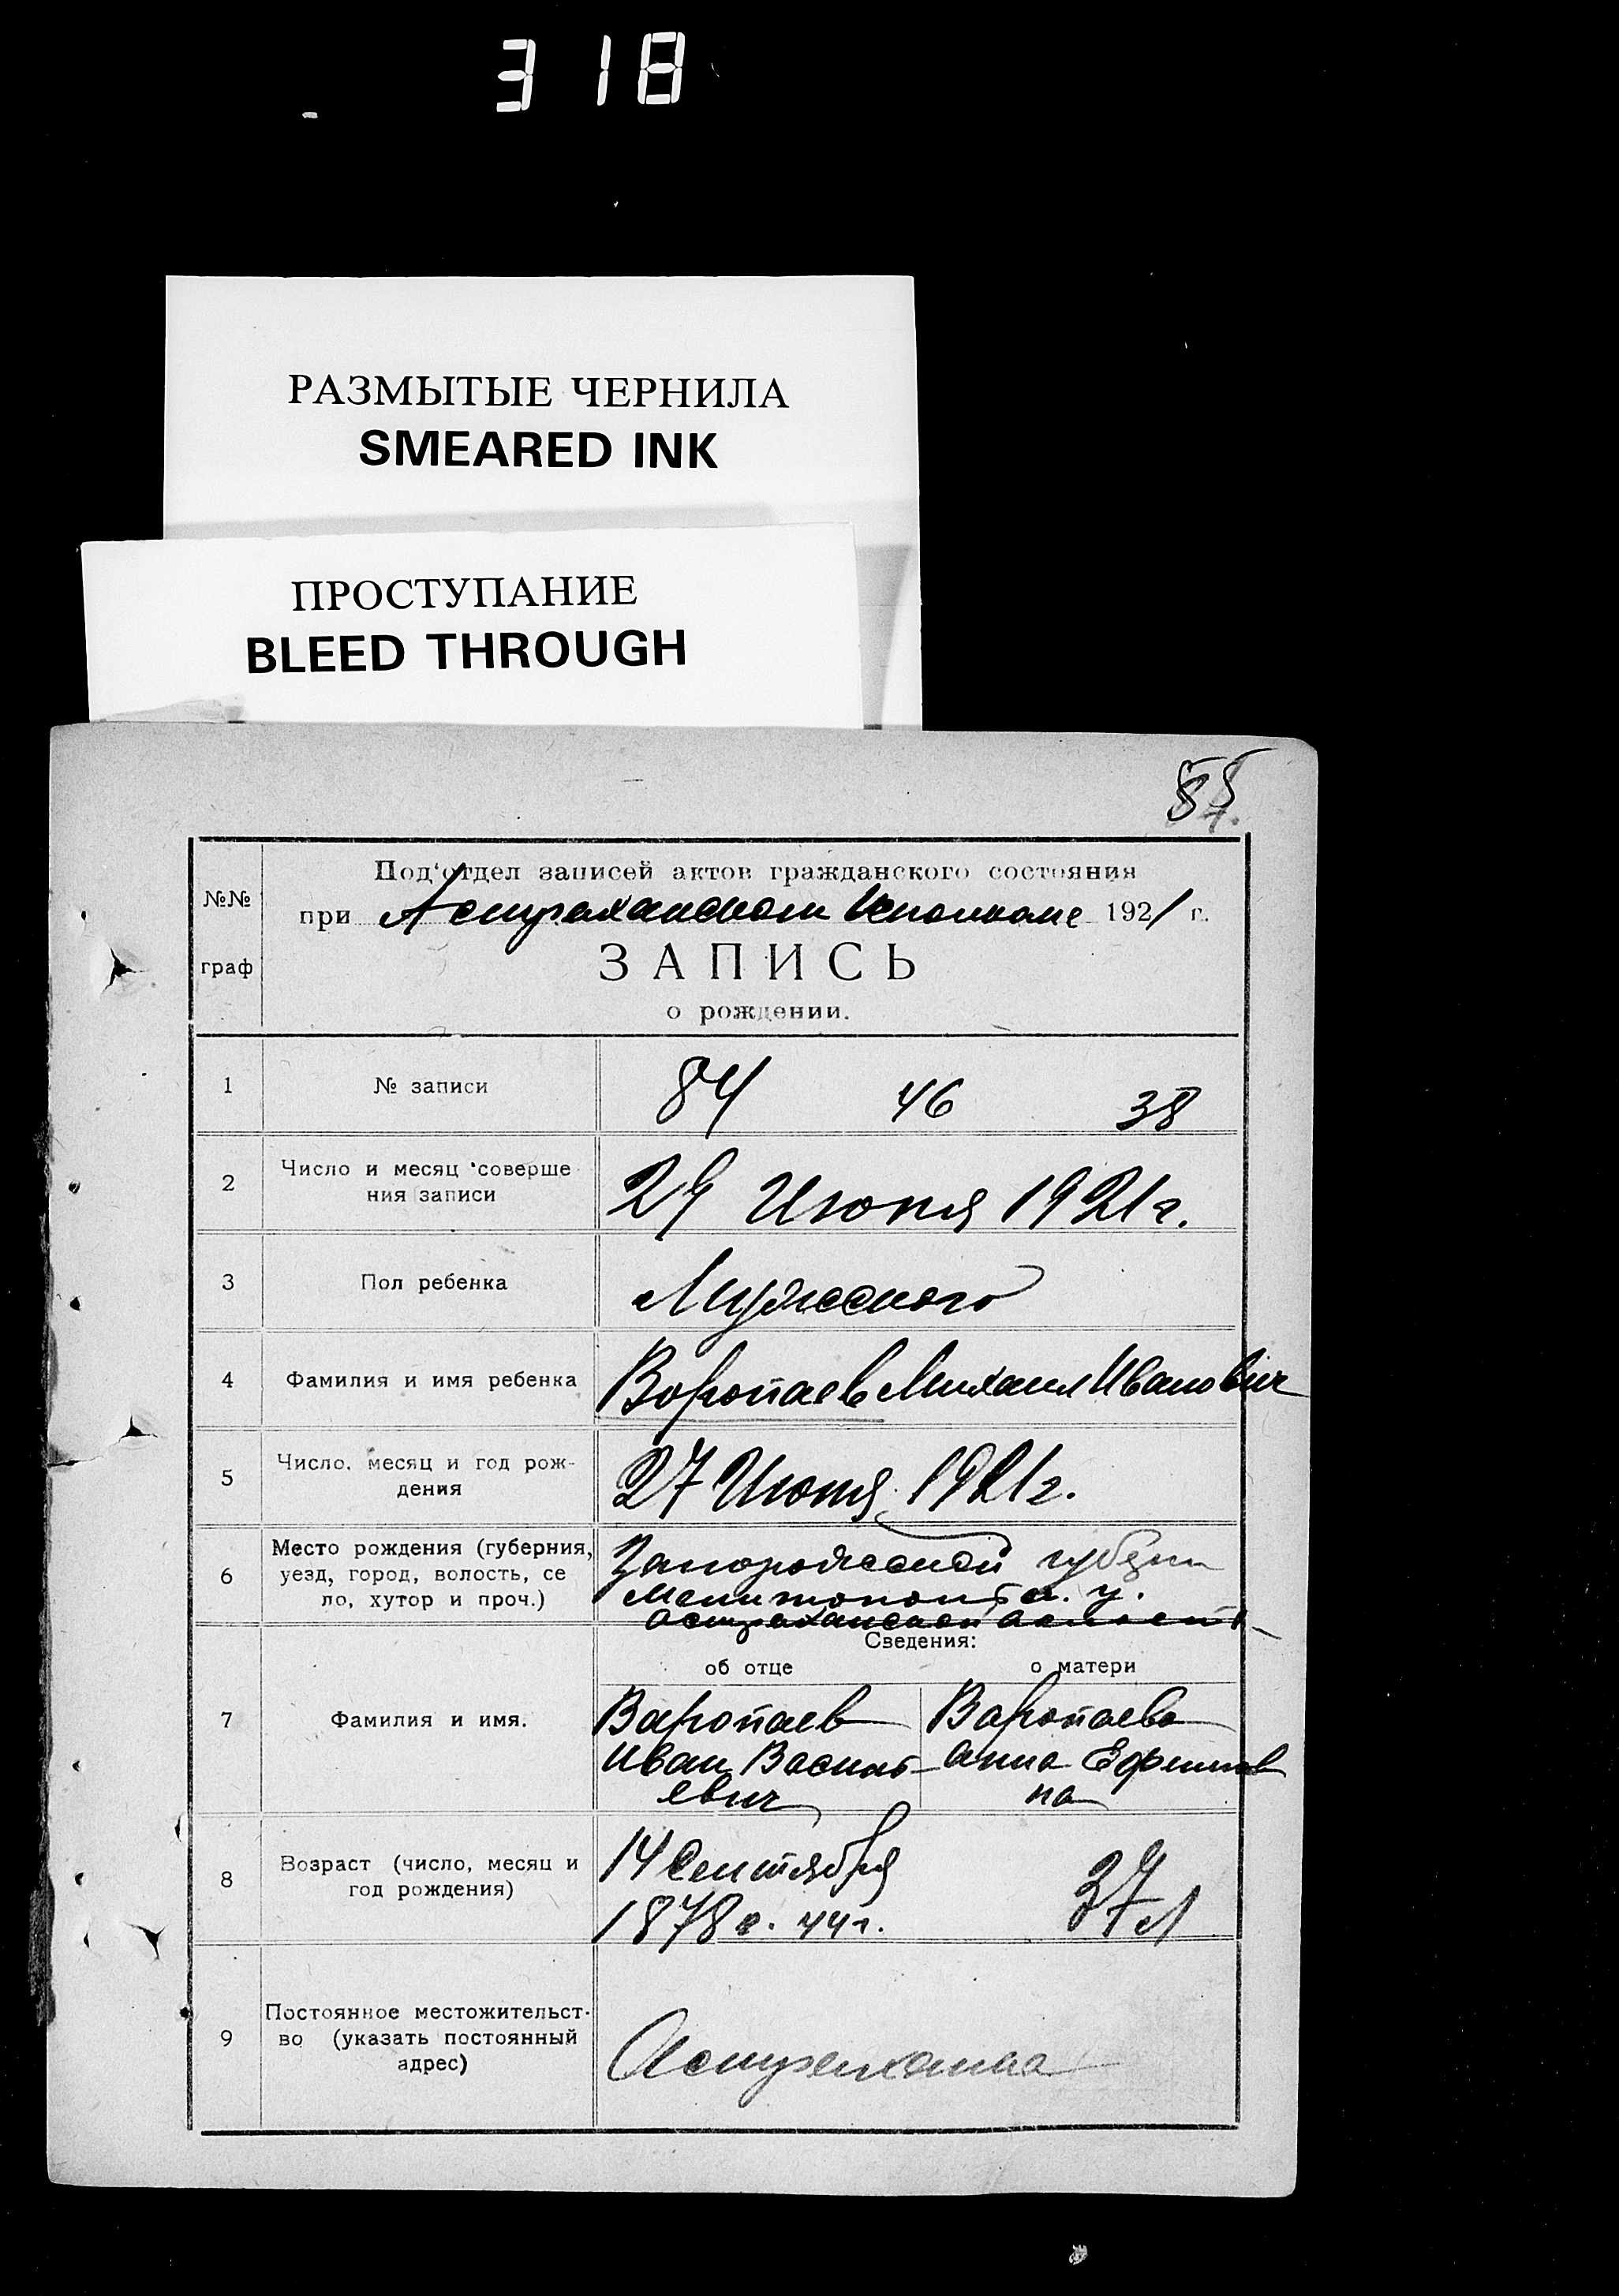 318
РАЗМЫТЫЕ ЧЕРНИЛА
SMEARED INK
ПРОСТУПАНИЕ
BLEED THROUGH
№№ граф
Под‘отдел записей актов гражданского состояния
при Астраханском Исполкоме 1921 г.
ЗАПИСЬ
о рождении.
1 № записи 84 46 38
2 Число и месяц соверше
ния записи
29 Июня 1921г.
3 Пол ребенка Мужского
4 Фамилия и имя ребенка Воропаев Михаил Иванович
5 Число, месяц и год рож-
дения
27 Июня 1921г.
6 Место рождения (губерния,
уезд, город, волость, се
ло, хутор и проч.)
Запорожской губерн
Мелитопольск. у.
Астраханской волости
Сведения:
об отце о матери
7 Фамилия и имя.
Варопаев
Иван Василь-
евич
Варопаева
Анна Ефимов
на
8 Возраст (число, месяц и
год рождения)
14 Сентября
1878 г. 44 г.
37 л
9 Постоянное местожительст-
во (указать постоянный
адрес)
Астраханка